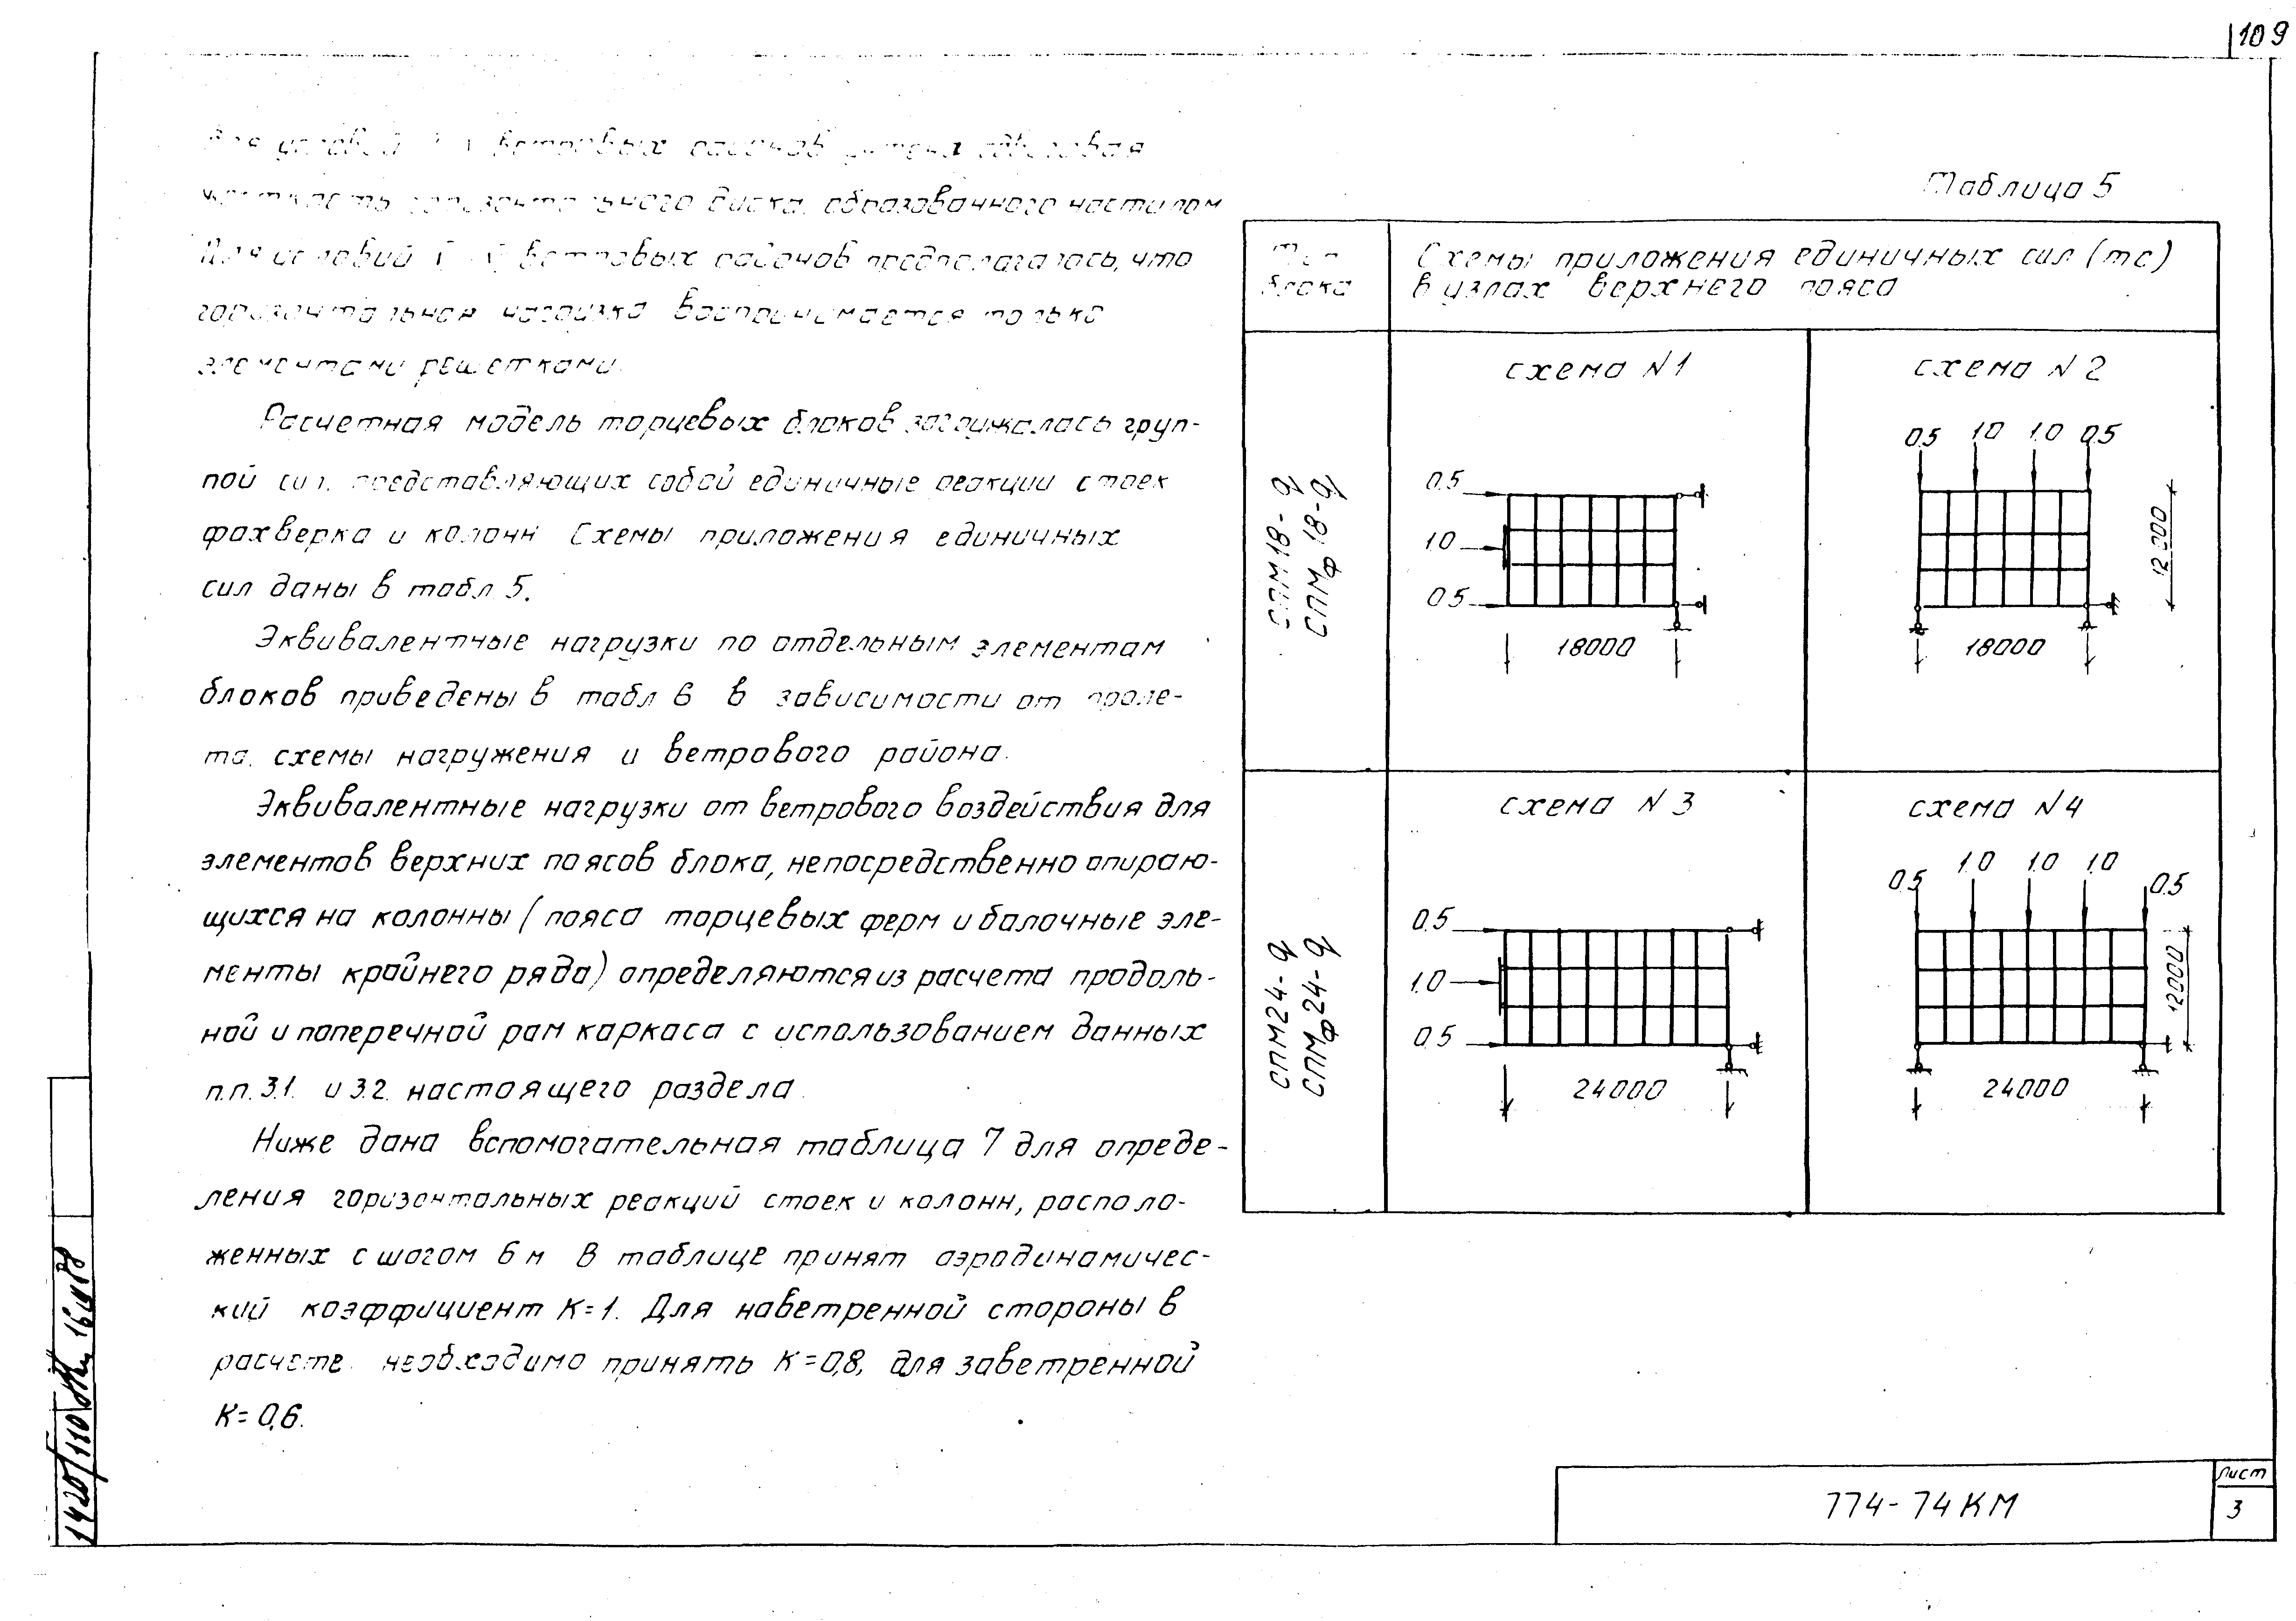 109
ветровых районов
горизонтального диска, образованного настилом
Для условий ветровых районов предполагалось, что
горизонтальная нагрузка воспринимается только
элементами решетками.
Расчетная модель торцевых блоков загружалась груп-
пой сил, представляющих собой единичные реакции стоек
фахверка и колонн Схемы приложения единичных
сил даны в табл 5.
Эквивалентные нагрузки по отдельным элементам
блоков приведены в табл 6 в зависимости от проле-
та, схемы нагружения и ветрового района.
Эквивалентные нагрузки от ветрового воздействия для
элементов верхних поясов блока, непосредственно опираю-
щихся на колонны (пояса торцевых ферм и балочные эле-
менты крайнего ряда) определяются из расчета продоль-
ной и поперечной рам каркаса с использованием данных
п.п. 3.1. и 3.2. настоящего раздела.
Ниже дана вспомогательная таблица 7 для опреде-
ления горизонтальных реакций стоек и колонн, располо-
женных с шагом 6 м В таблице принят аэродинамичес-
кий коэффициент К=1. Для наветренной стороны в
расчете необходимо принять К=0,8, для заветренной
К=0,6.
Таблица 5
Тип
блока
Схемы приложения единичных сил (тс)
в узлах верхнего пояса
СПМ18-9
СПМФ18-9
схема N1
0.5
1.0
0.5
18000
схема N2
0.5 1.0 1.0 0.5
12000
18000
СПМ24-9
СПМФ24-9
схема N3
0.5
1.0
0.5
24000
схема N4
0.5 1.0 1.0 1.0 0.5
12000
24000
1420/110
774-74КМ
Лист
3